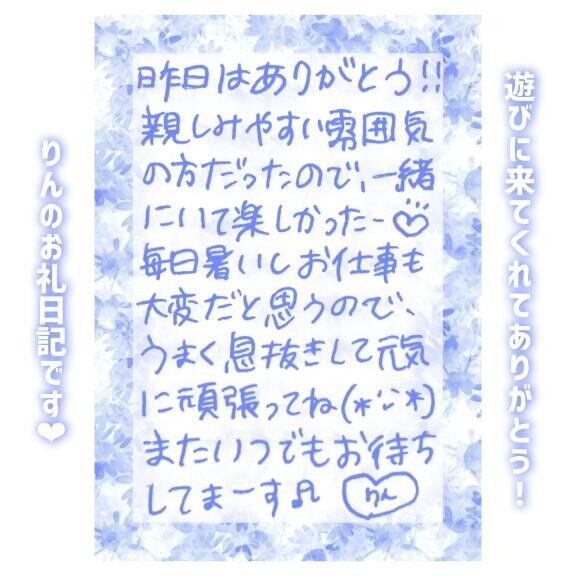 遊びに来てくれてありがとう！
昨日はありがとう!!
親しみやすい雰囲気
の方だったので、一緒
にいて楽しかったー♡
毎日暑いしお仕事も
大変だと思うので、
うまく息抜きして元気
に頑張ってね(*'ω'*)
またいつでもお待ち
してまーす♫ りん
りんのお礼日記です❤